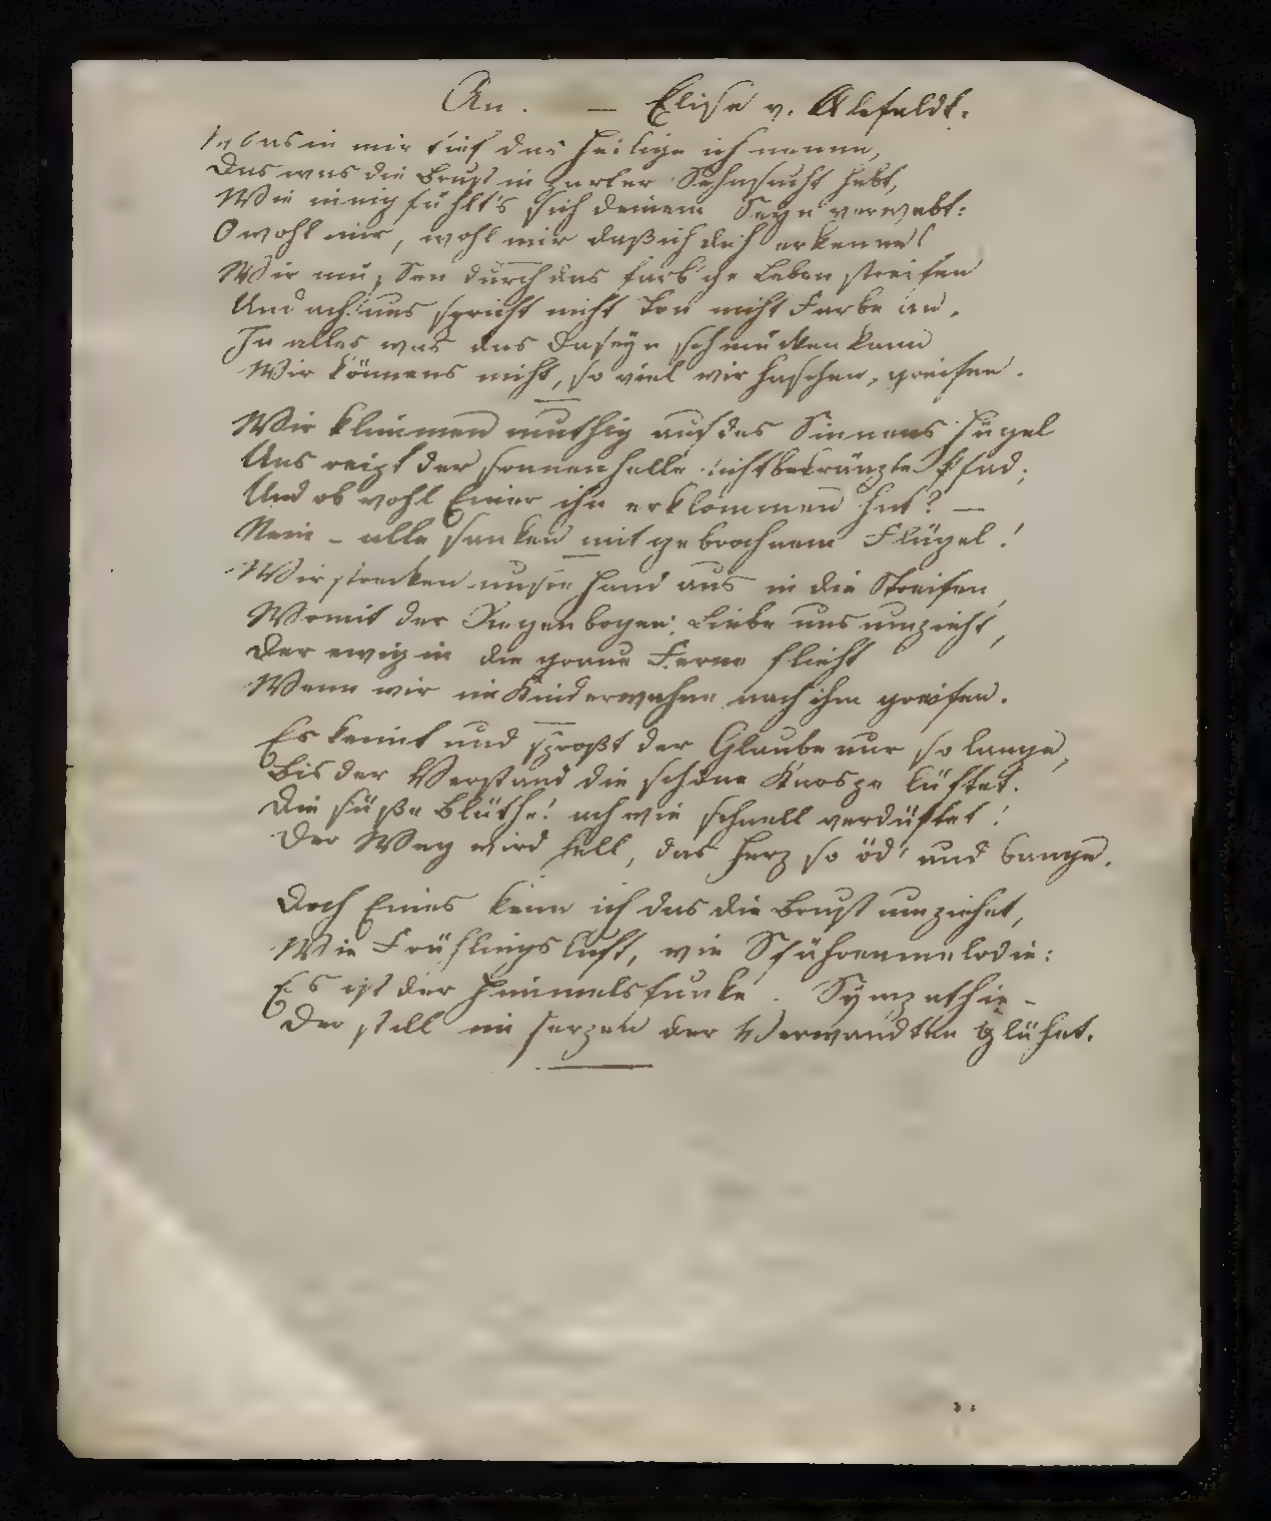 An. — Elise v. Alefeldt.
das in mir tief das Heilige ich nenne,
Das was die Brust in zarter Sehnsucht hebt,
Wie innig fühlt's sich deinem Seyn verwebt:
O wohl mir, wohl mir daß ich dich erkenne!
Wir müssen durch das farb'ge Leben streifen
Und ach! uns spricht nicht Ton nicht Farbe an.
In alles was das Daseyn schmücken kann
Wir können's nicht, so viel wir haschen, greifen.
Wir klimmen muthig auf des Sinnens Hügel
Uns reizt der sonnenhelle lichtbekränzte Pfad;
Und ob wohl Einer ihn erklommen hat? —
Nein – alle sanken mit gebrochnem Flügel!
Wir strecken unsre Hand aus in die Streifen,
Womit der Regenbogen: Liebe uns umzieht,
Der ewig in die graue Ferne flieht
Wenn wir im Kinderwahne nach ihm greifen.
Es keimt und sproßt der Glaube nur so lange,
Bis der Verstand die schöne Knospe lüftet.
Die süße Blüthe! ach wie schnell verdüftet!
Der Weg wird hell, das Herz so öd' und bange.
Doch Eines kenn ich das die Brust umziehet,
Wie Frühlingsluft, wie Sphärenmelodie:
Es ist der Himmelsfunke . Sympathie –
Der still im Herzen der Verwandten glühet.